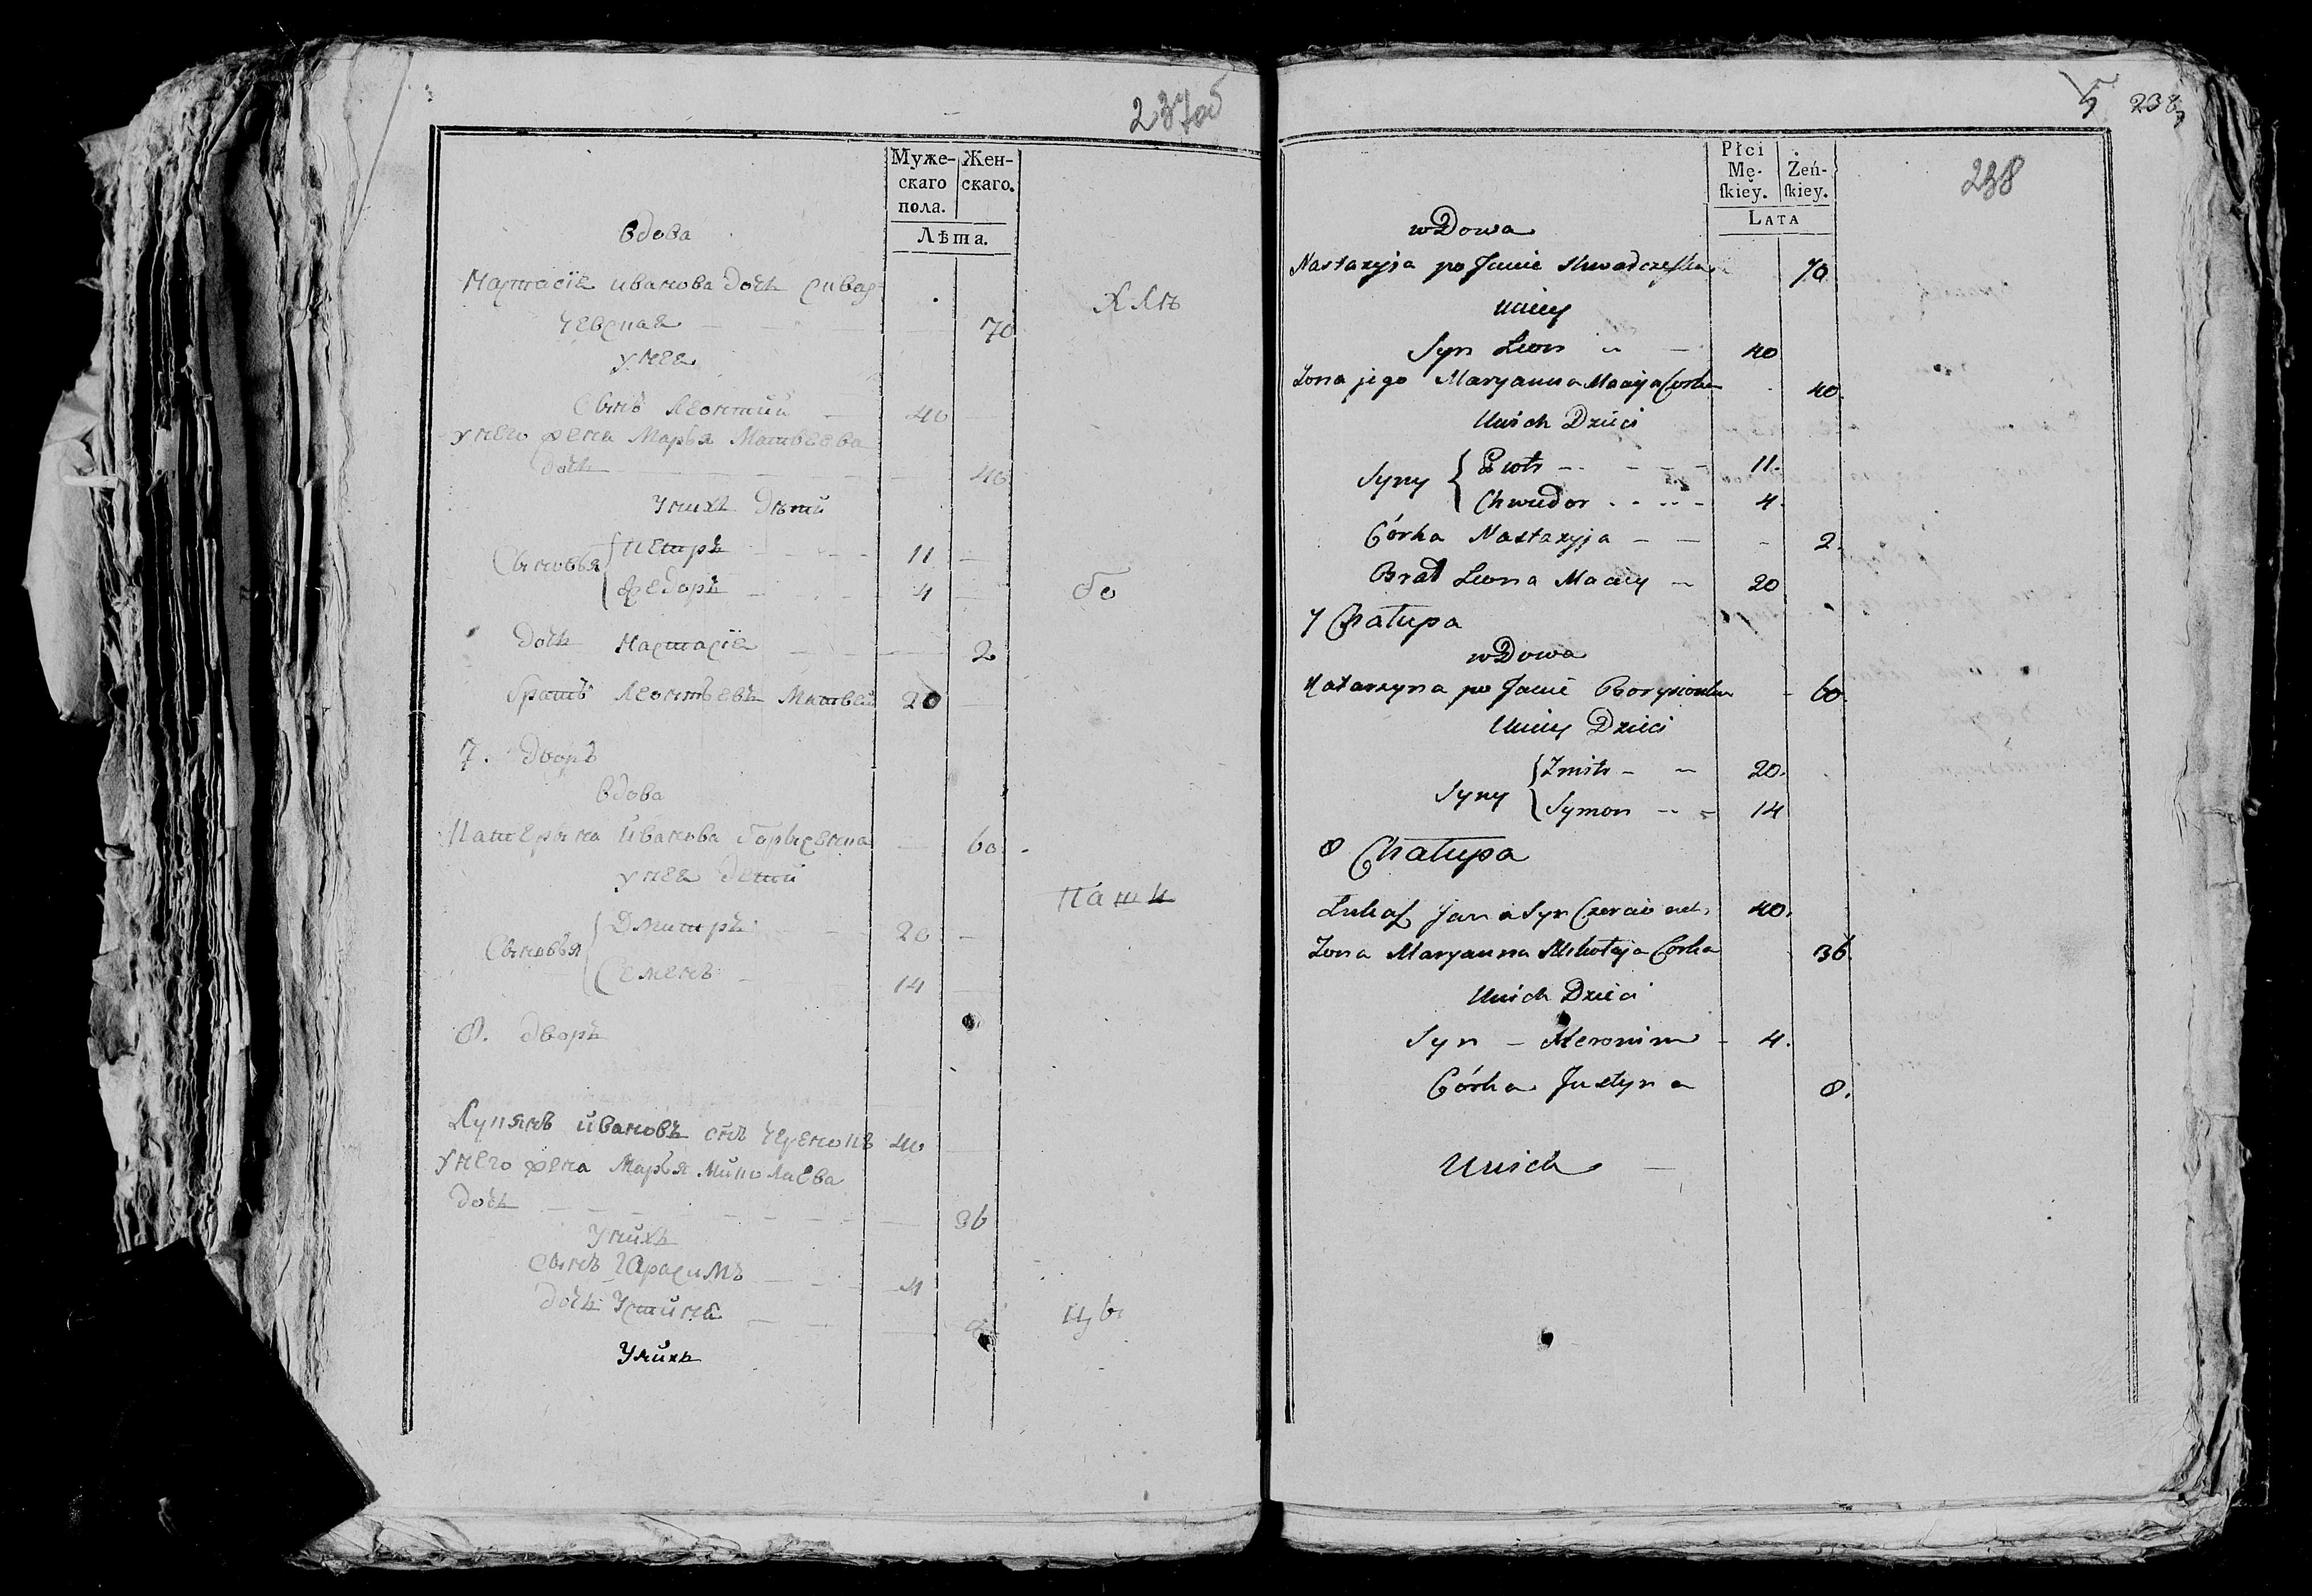 237об
Муже-
скаго
пола.
Жен-
скаго.
Лѣта.
вдова
Настасіѧ иванова дочь
70
у нея
сынъ леонтий 40
у него жена Марья Матвеева
дочь 40
у нихъ дѣти
Сыновья { петръ 11
федоръ 4
дочь Настасіѧ 2
братъ леонтьевъ Матвей 20
7. дворъ
вдова
катерына иванова борысенка 60
у нея дети
Сыновья { Дмитръ 20
Семенъ 14
8. дворъ
Лукянъ ивановъ снъ 40
у него жена Марья Миколаева
дочь 36
у нихъ
сынъ Гарасимъ 4
дочь Устиня
у нихъ
5 238
238
Płci
Mę-
ſkiey.
Żeń-
ſkiey.
Lata
wDowa
Nastazyja po Janie 70
uniey
Syn Leon 40
Zona jego Maryanna Macieja Corka 40.
Unich Dzieci
Syny { Piotr 11.
Chwedor 4.
Córka Nastazyja 2.
Brat Leona Maciey 20
7 Chałupa
wDowa
Katarzyna po Janie Borysionka 60.
Uniey Dzieci
Syny { Zmitr 20.
Symon 14
8 Chałupa
Łukasz Jana Syn 40.
Zona Maryanna Mikołaja Corka 36
Unich Dzieci
Syn Heronim 4.
Córka Justyna 8.
Unich